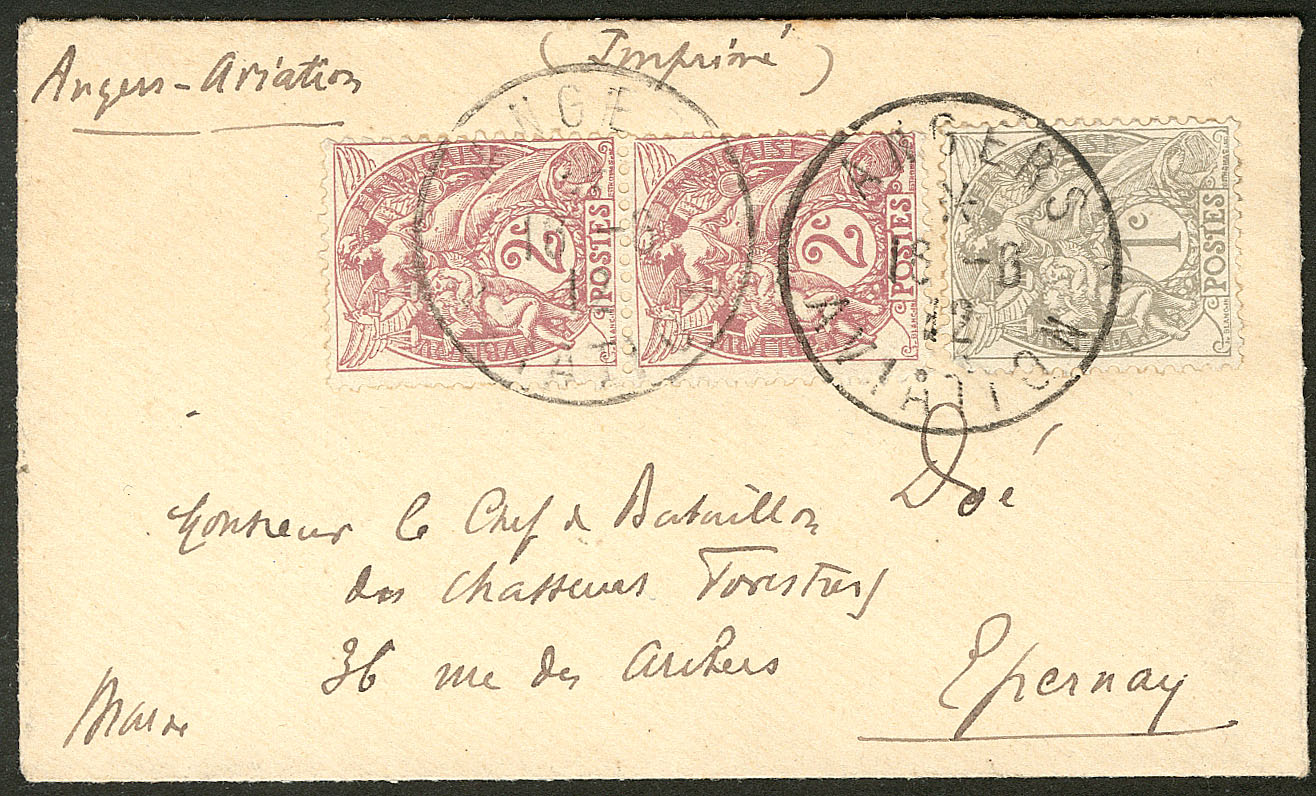 Angers-Aviation
(Imprimé)
RÉPUBLIQUE FRANÇAISE
2c
POSTES
FRANÇAISE
2c
POSTES
1c
POSTES
ANGERS
16 -6
12
AVIATION
Monsieur le Chef de Bataillon Doé
des Chasseurs Forestiers
36 rue des Archers
Epernay
Marne